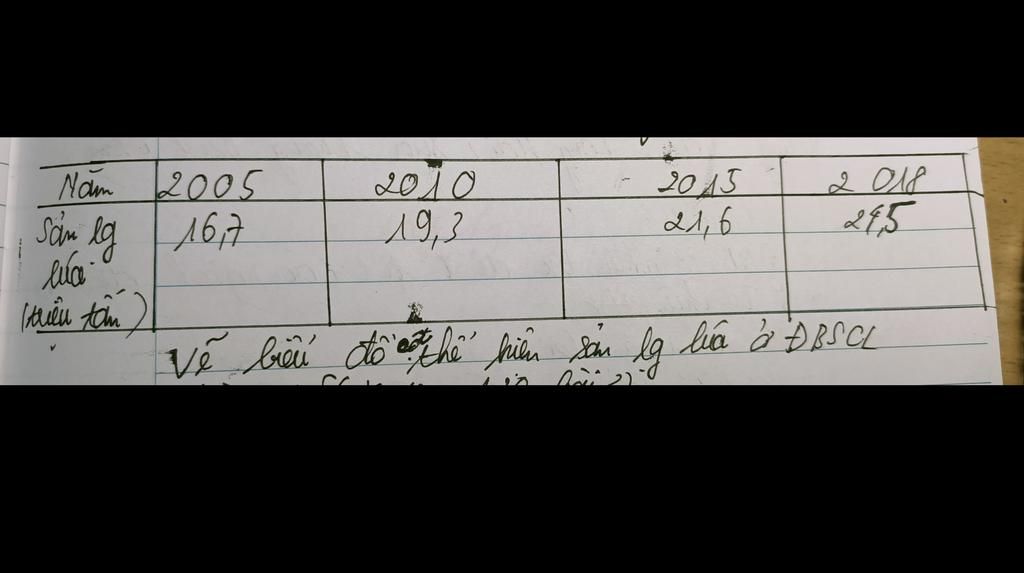 Năm 2005 2010 2015 2018
Sản lg 16,7 19,3 21,6 24,5
lúa
(triệu tấn)
Vẽ biểu đồ cột thể hiện sản lg lúa ở ĐBSCL